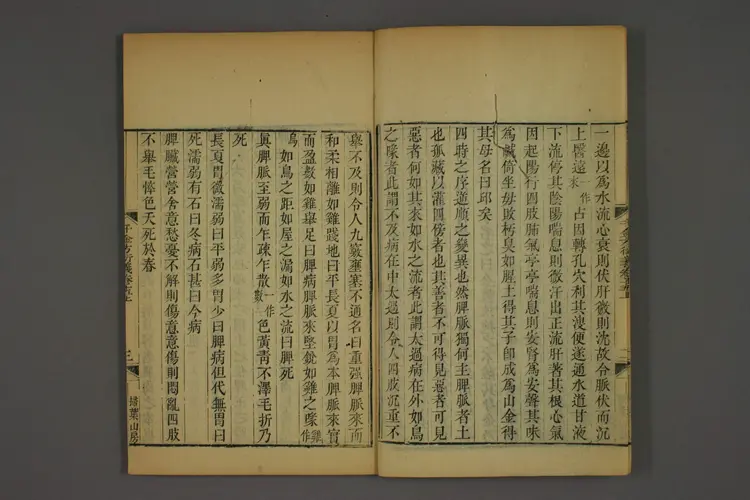 一邊以爲水流心衰則伏肝微則沈故令脈伏而沉
上醫遠一作來占因轉孔穴利其溲便遂通水道甘液
下流停其陰陽喘息則微汗出正流肝著其根心氣
因起陽行四肢肺氣亭亭喘息則安腎爲安聲其味
爲鹹倚坐母敗洿臭如腥土得其子卽成爲山金得
其母名曰邱矣
四時之序逆順之變異也然脾脈獨何主脾脈者土
也孤臟以灌四傍者也其善者不可得見惡者可見
惡者何如其來如水之流者此謂太過病在外如鳥
之喙者此謂不及病在中太過則令人四肢沉重不
舉不及則令人九竅壅塞不通名曰重强脾脈來而
和柔相離如雞踐地曰平長夏以胃爲本脾脈來實
而盈數如雞舉足曰脾病脾脈來堅銳如雞之喙雞一作
鳥如鳥之距如屋之漏如水之流曰脾死
眞脾脈至弱而乍疎乍散一作數色黃靑不澤毛折乃
死
長夏胃微濡弱曰平弱多胃少曰脾病但代無胃曰
死濡弱有石曰冬病石甚曰今病
脾臟營營舍意愁憂不解則傷意意傷則悶亂四肢
不舉毛悴色夭死於春
千金方衍義卷十五上
三
掃葉山房